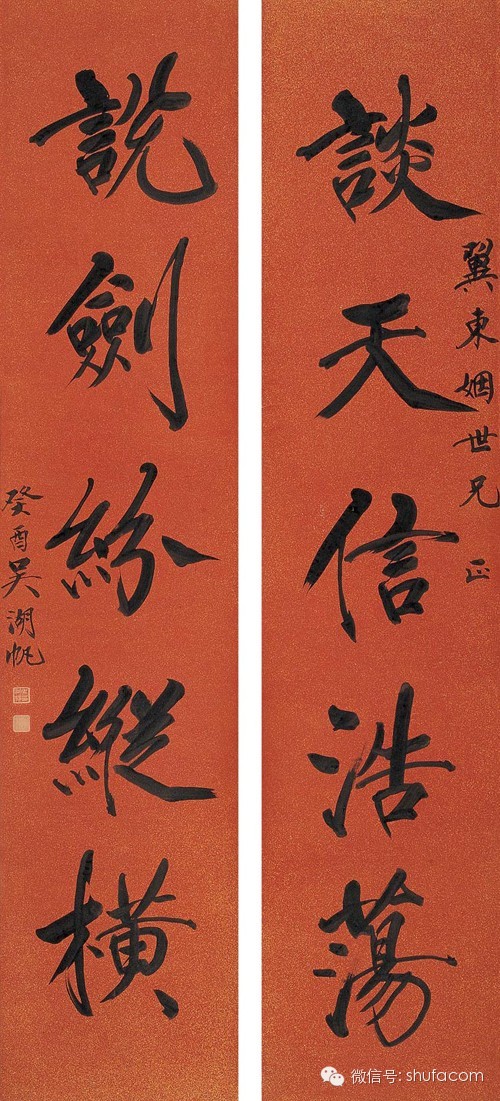 談天信浩蕩
翼東姻世兄正
說劍紛縱橫
癸酉吳湖帆
微信号: shufacom